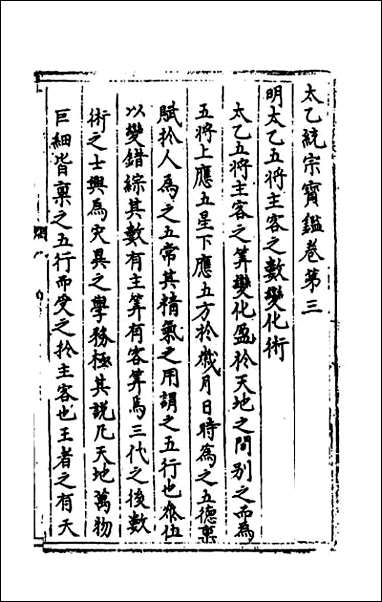 太乙統宗寳鑑卷第三
明太乙五将主客之數變化術
太乙五将主客之筭變化盈於天地之間别之而為
五将上應五星下應五方於歲月日時為之五德禀
賦於人為之五常其精氣之用謂之五行也叅伍
以變錯綜其數有主筭有客筭焉三代之後數
術之士興為灾異之學務極其說凡天地萬物
巨細皆禀之五行而受之於主客也王者之有天